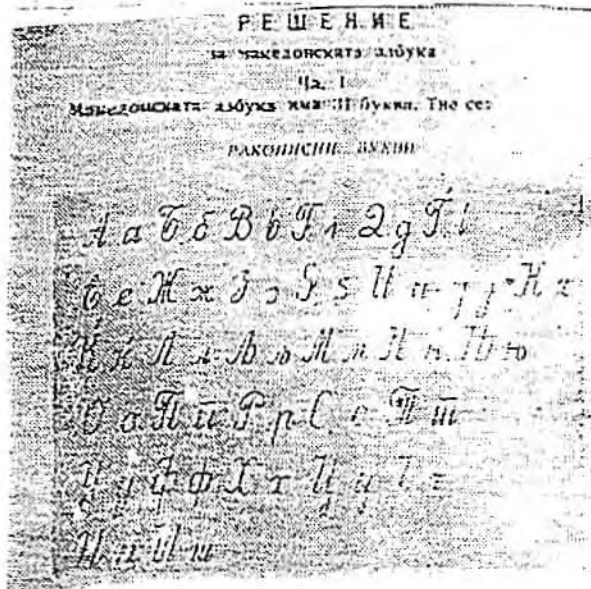 РЕШЕНИЕ
за македонската азбука
Чл. 1
Македонската азбука има 31 буква. Тие се:
РАКОПИСНИ БУКВИ
А а Б б В в Г г Д д Ѓ ѓ
Е е Ж ж З з Ѕ ѕ И и Ј ј К к
Ќ ќ Л л Љ љ М м Н н Њ њ
О о П п Р р С с Т т
У у Ф ф Х х Ц ц
Ч ч Ш ш